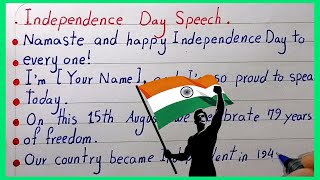 Independence Day Speech.
Namaste and happy Independence Day to
every one!
I'm [Your Name], so proud to spea
Today.
On this 15th Augus we celebrate 79 years
of freedom.
Our country became in 194